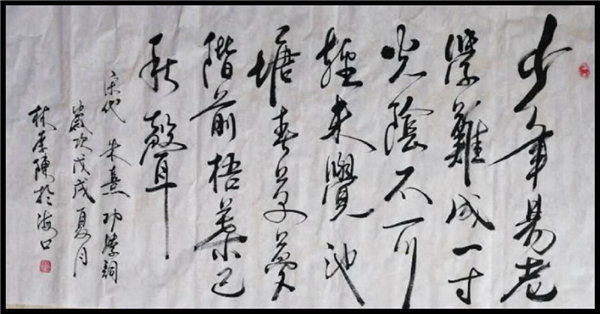 少年易老
學難成一寸
光陰不可
輕未覺池
塘春草夢
階前梧葉已
秋聲
宋代 朱熹 學
歲次戊戌夏月
陳於海口